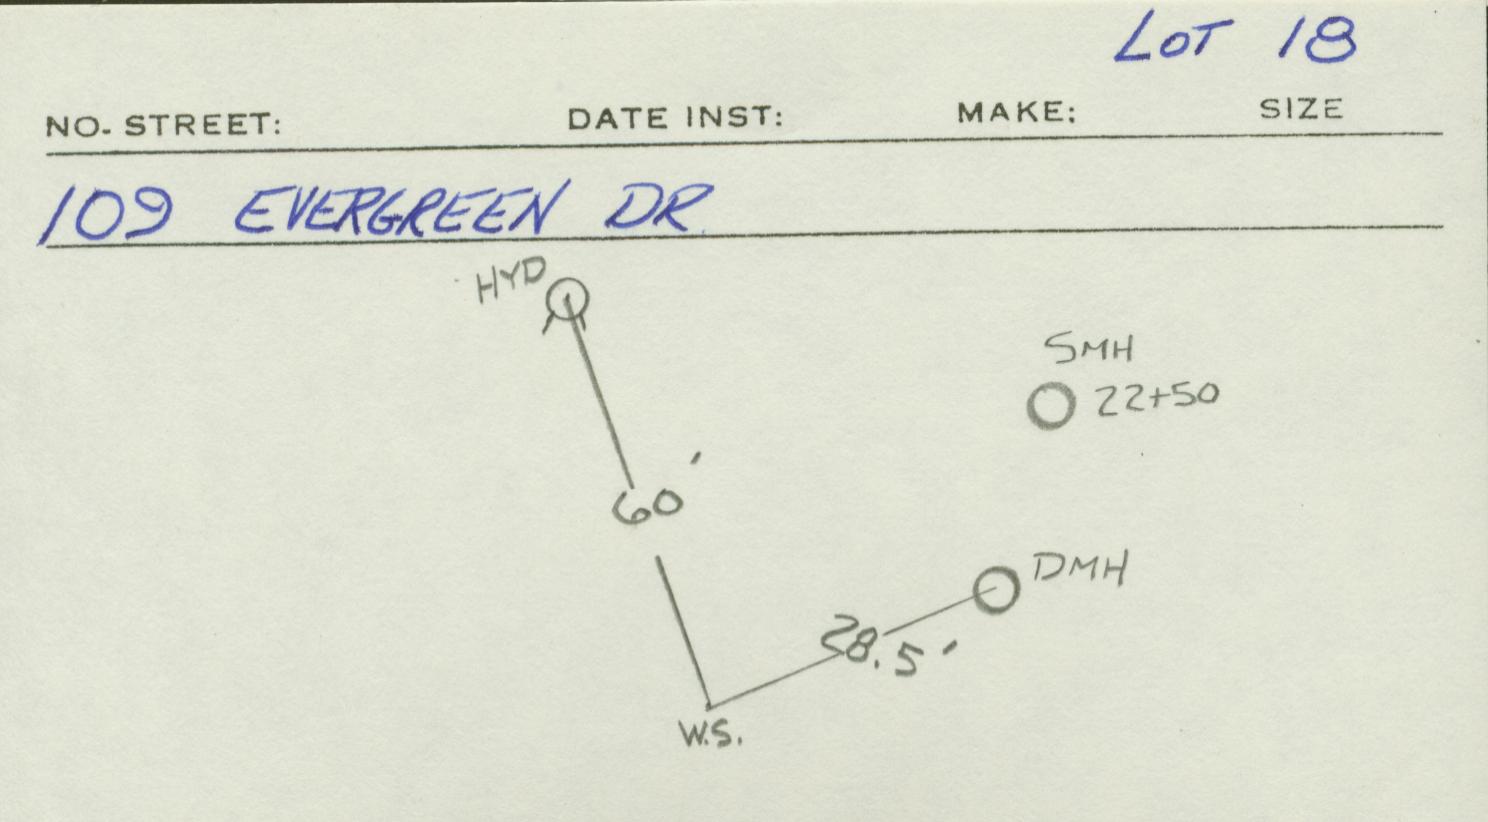 LOT 18
NO. STREET: DATE INST: MAKE: SIZE
109 EVERGREEN DR.
HYD
SMH
22+50
60'
DMH
28.5'
W.S.